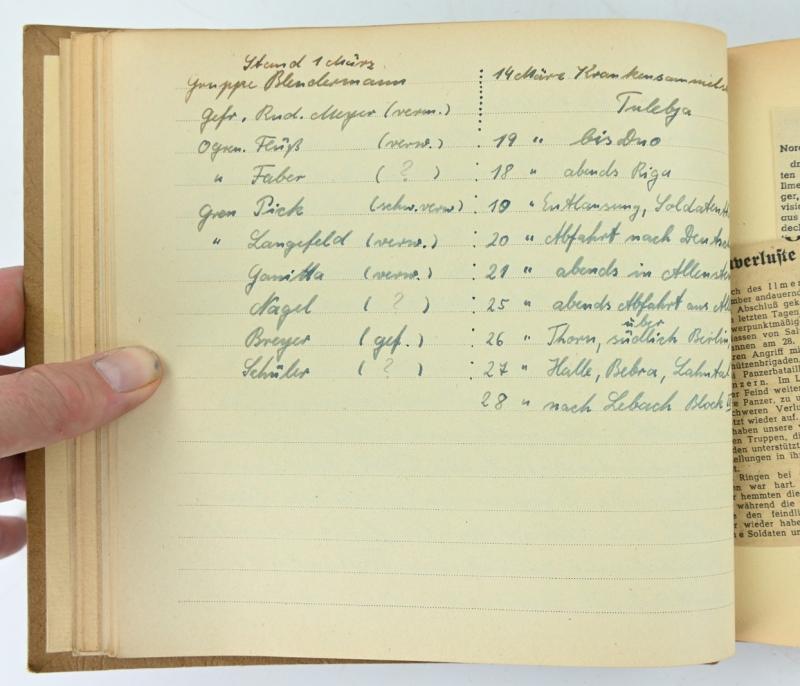 Stand 1 März
Gruppe Blendermann
Gefr. Rud. Meyer (verw.)
Ogren. Flüß (verw.)
" Faber ( ? )
Gren Pick (schw. verw)
" Langefeld (verw.)
Ganitta (verw.)
Nagel ( ? )
Breyer (gef.)
Schüler ( ? )
14 März Krankensammels
Tulebja
19 " bis Dno
18 " abends Riga
19 " Entlausung, Soldaten
20 " Abfahrt nach Deutsc
21 " abends in Allenste
25 " abends Abfahrt aus Al
über
26 " Thorn, südlich Berlin
27 " Halle, Bebra, Lahnta
28 " nach Lebach Block
Nord
dr
ten
Ilme
ger,
visio
aus
deck
verluste
ch des Ilmen
mber andauernd
Abschluß gek
letzten Tagen,
werpunktmäßig
assen von Salz
annen am 28.
ren Angriff mi
hützenbrigaden,
Panzerbataill
nzern. Im L
Feind weiter
e Panzer, zu u
chweren Verlu
tzt wieder auf.
haben unsere
en Truppen, di
den unterstützt
ellungen in ih
t.
Ringen bei
n war hart.
hemmten die
während die
e den feindli
r wieder habe
e Soldaten un